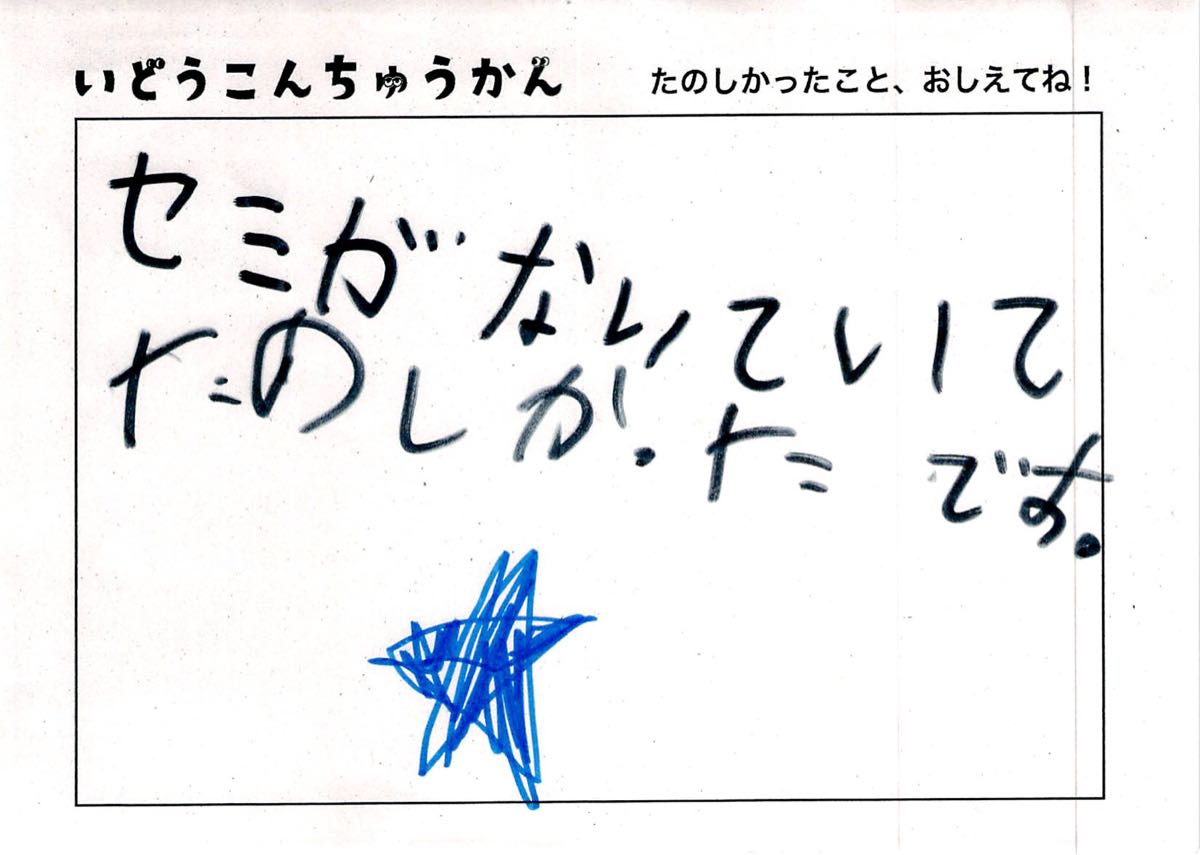 いどうこんちゅうかん
たのしかったこと、おしえてね！
セミが ないていて
たのしか.た です。